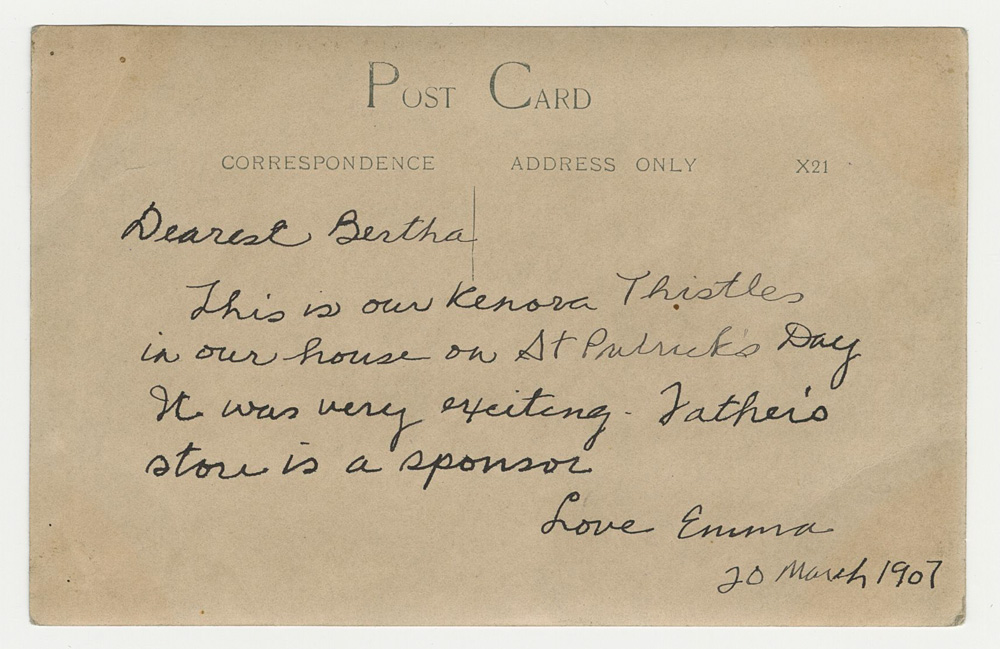 POST CARD
CORRESPONDENCE ADDRESS ONLY X21
Dearest Bertha
This is our Kenora Thistles
in our house on St Patrick's Day
It was very exciting - Father's
store is a sponsor
Love Emma
20 March 1907